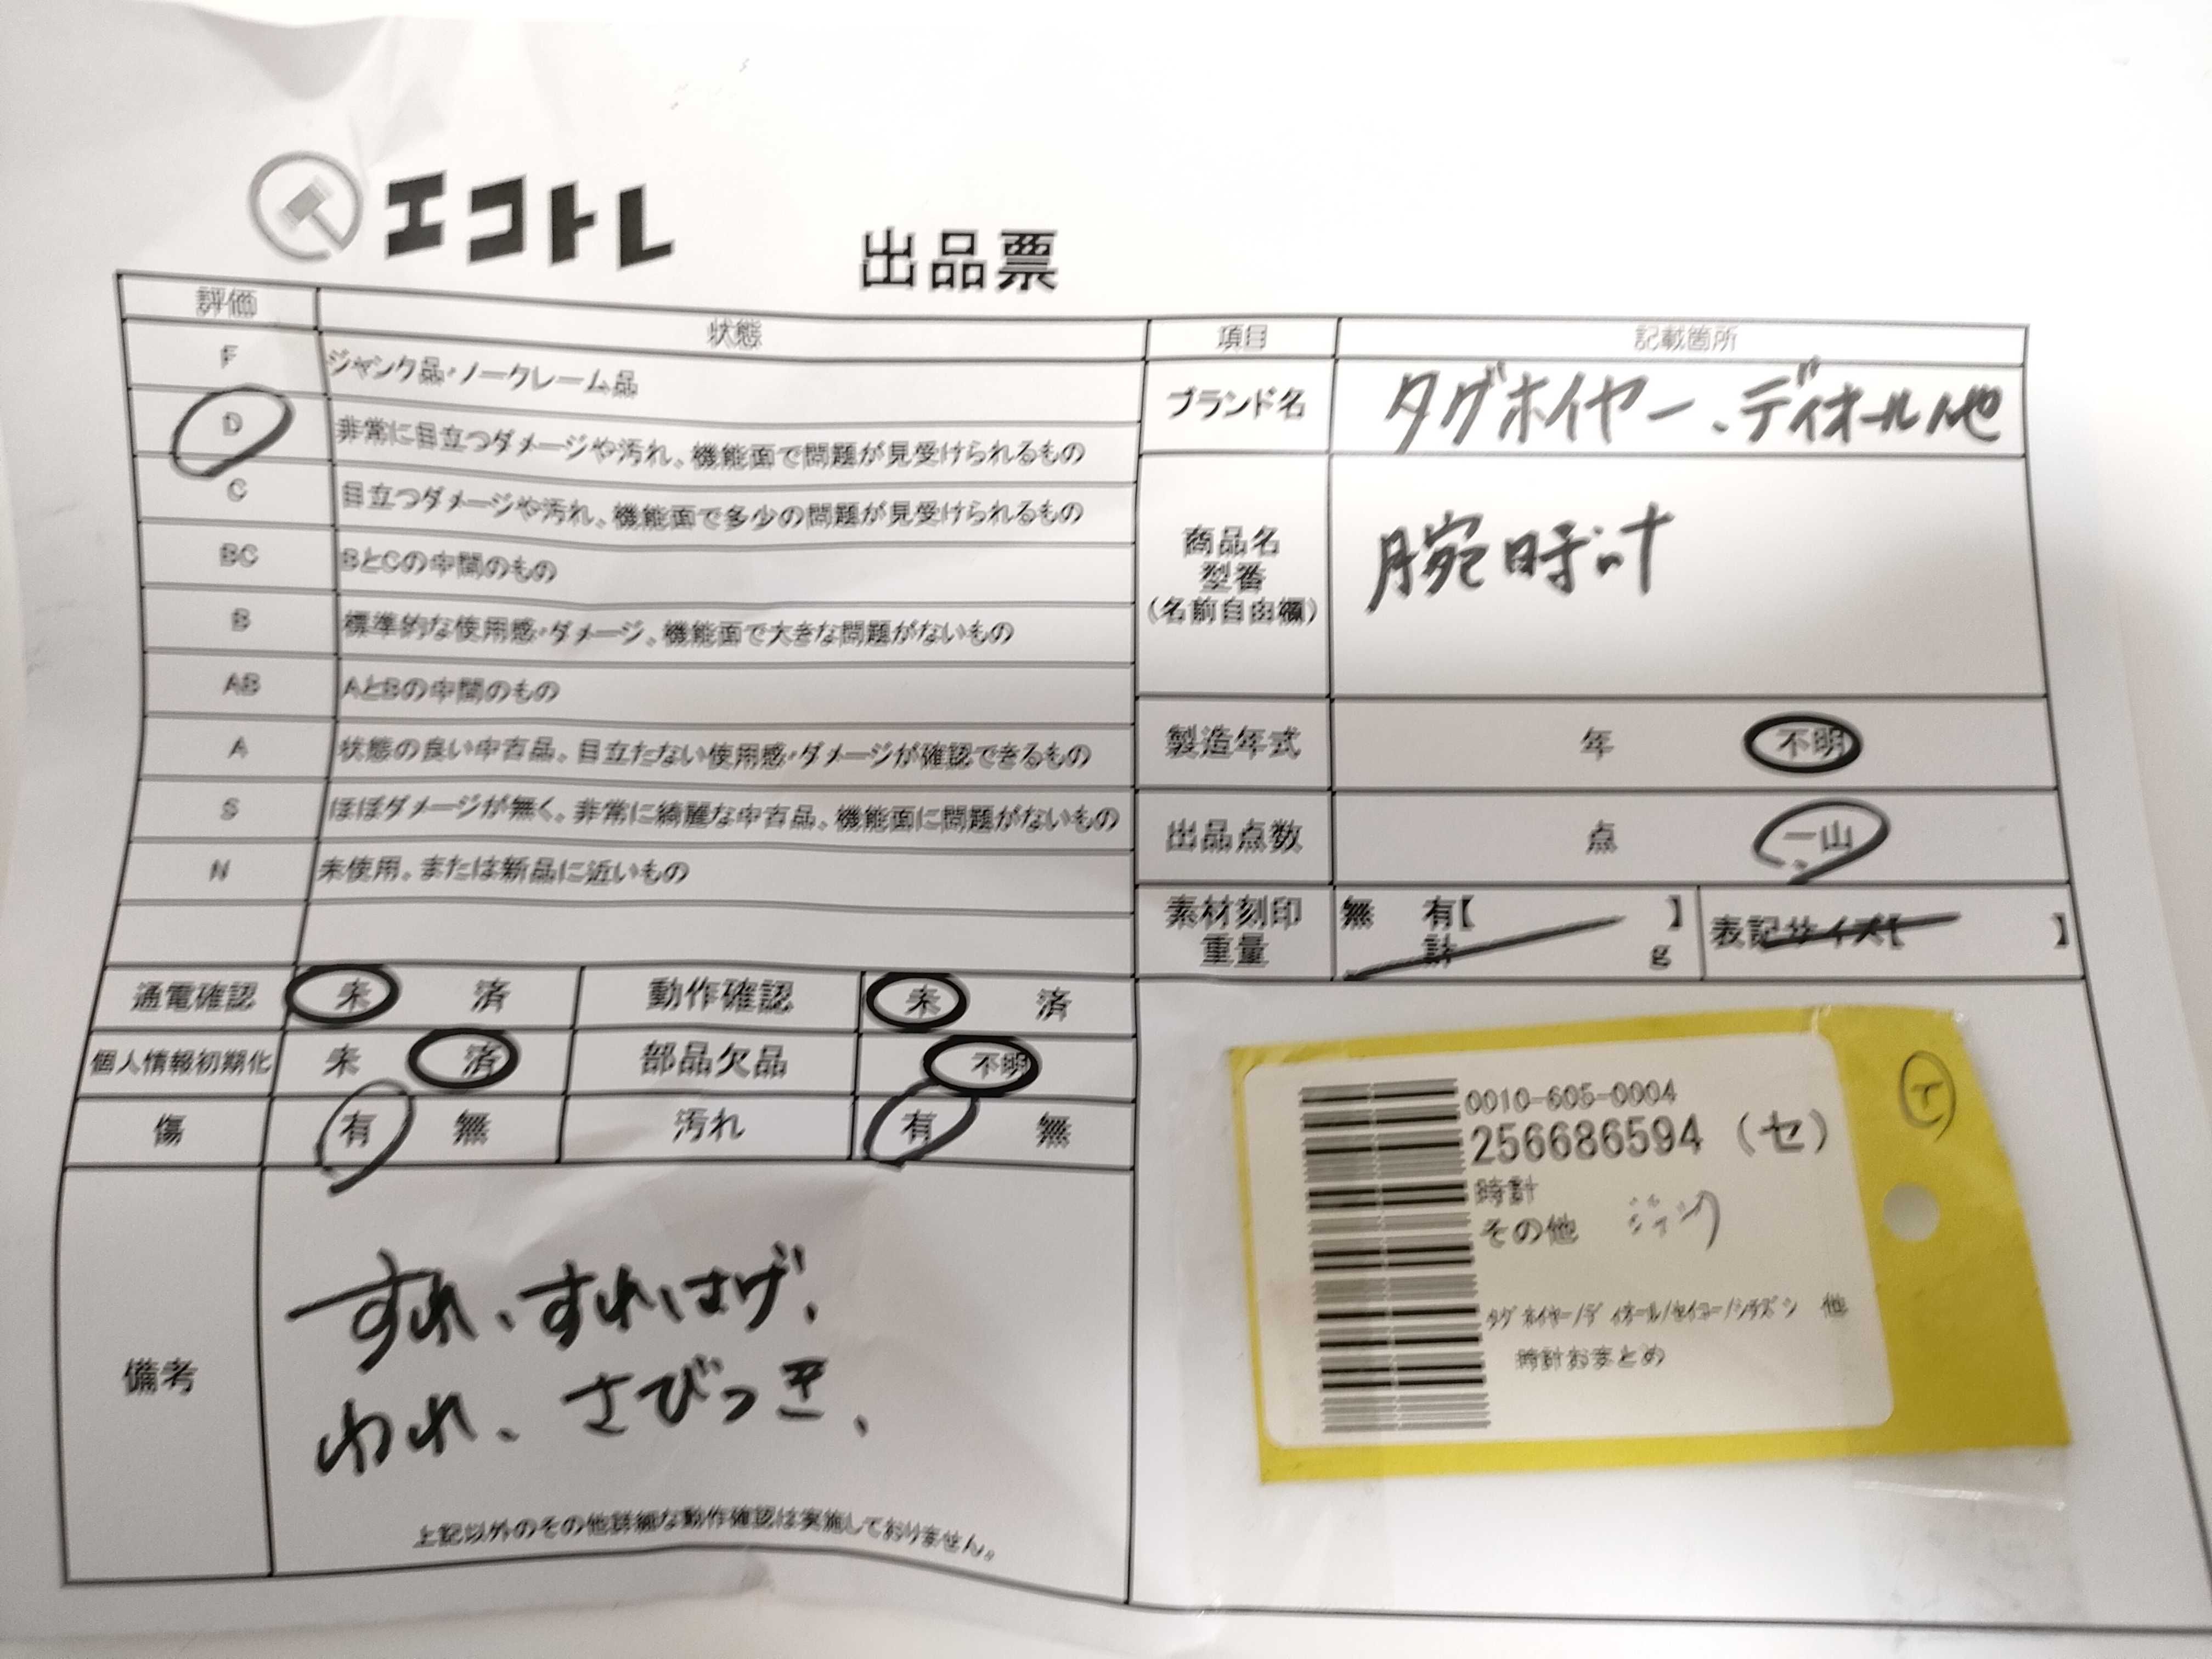 エコトレ
出品票
評価 状態
F ジャンク品・ノークレーム品
D 非常に目立つダメージや汚れ、機能面で問題が見受けられるもの
C 目立つダメージや汚れ、機能面で多少の問題が見受けられるもの
BC BとCの中間のもの
B 標準的な使用感・ダメージ、機能面で大きな問題がないもの
AB AとBの中間のもの
A 状態の良い中古品、目立たない使用感・ダメージが確認できるもの
S ほぼダメージが無く、非常に綺麗な中古品、機能面に問題がないもの
N 未使用、または新品に近いもの
通電確認 未 済 動作確認 未 済
個人情報初期化 未 済 部品欠品 不明
傷 有 無 汚れ 有 無
備考
すれ、すれはげ、
われ、さびつき、
上記以外のその他詳細な動作確認は実施しておりません。
項目 記載箇所
ブランド名 タグホイヤー、ディオール他
商品名
型番
(名前自由欄)
腕時計
製造年式 年 不明
出品点数 点 一山
素材刻印
重量
無 有【 】
計 g
表記サイズ【 】
0010-605-0004
256686594 (セ)
時計
その他
タグホイヤー/ディオール/セイコー/シチズン 他
時計おまとめ